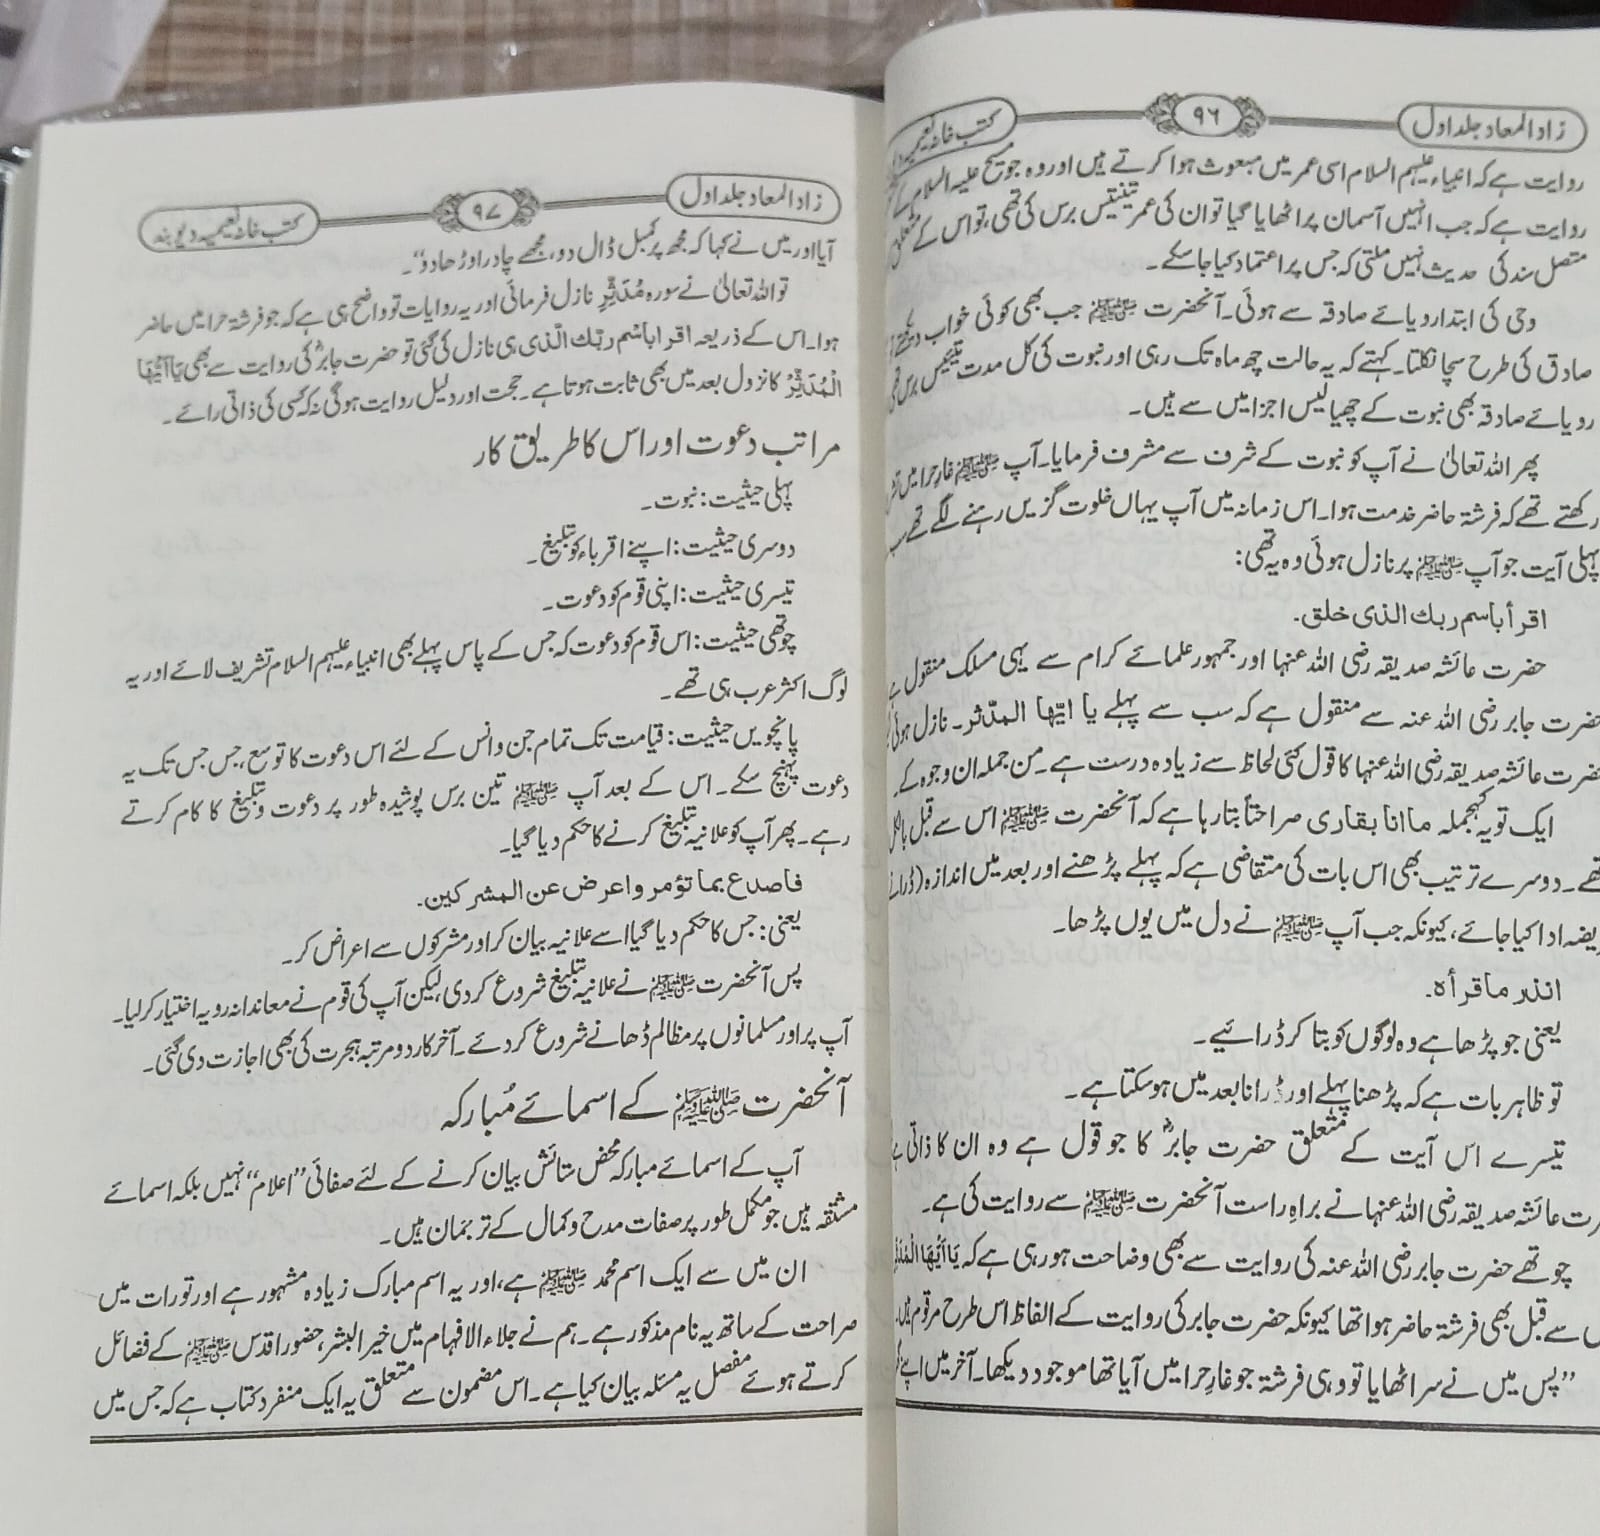 زاد المعاد جلد اول
۹۶
کتب خانہ نعیمیہ
روایت ہے کہ انبیاء علیہم السلام اسی عمر میں مبعوث ہوا کرتے ہیں اور وہ جو مسیح علیہ السلام کے
روایت ہے کہ جب انہیں آسمان پر اٹھایا گیا تو ان کی عمر تینتیس برس کی تھی، تو اس کے متعلق
متصل سند کی حدیث نہیں ملتی کہ جس پر اعتماد کیا جا سکے۔
وحی کی ابتدا رویائے صادقہ سے ہوئی۔ آنحضرت ﷺ جب بھی کوئی خواب دیکھتے
صادق کی طرح سچا نکلتا۔ کہتے کہ یہ حالت چھ ماہ تک رہی اور نبوت کی کل مدت تیئیس برس
رویائے صادقہ بھی نبوت کے چھیالیس اجزا میں سے ہیں۔
پھر اللہ تعالیٰ نے آپ کو نبوت کے شرف سے مشرف فرمایا۔ آپ ﷺ غارِ حرا میں
رکھتے تھے کہ فرشتہ حاضر خدمت ہوا۔ اس زمانہ میں آپ یہاں خلوت گزیں رہنے لگے تھے
پہلی آیت جو آپ ﷺ پر نازل ہوئی وہ یہ تھی:
اقرأ باسم ربك الذی خلق.
حضرت عائشہ صدیقہ رضی اللہ عنہا اور جمہور علمائے کرام سے یہی مسلک منقول
حضرت جابر رضی اللہ عنہ سے منقول ہے کہ سب سے پہلے یا ایّھا المدّثر۔ نازل ہوئی
حضرت عائشہ صدیقہ رضی اللہ عنہا کا قول کئی لحاظ سے زیادہ درست ہے۔ من جملہ ان وجوہ کے
ایک تو یہ کہ جملہ ما انا بقاری صراحتاً بتا رہا ہے کہ آنحضرت ﷺ اس سے قبل بالکل
تھے۔ دوسرے ترتیب بھی اس بات کی متقاضی ہے کہ پہلے پڑھنے اور بعد میں اندازہ (ڈرانے
ادا کیا جائے، کیونکہ جب آپ ﷺ نے دل میں یوں پڑھا۔
انذر ما قرأه.
یعنی جو پڑھا ہے وہ لوگوں کو بتا کر ڈرائیے۔
تو ظاہر بات ہے کہ پڑھنا پہلے اور ڈرانا بعد میں ہو سکتا ہے۔
تیسرے اس آیت کے متعلق حضرت جابرؓ کا جو قول ہے وہ ان کا ذاتی
عائشہ صدیقہ رضی اللہ عنہا نے براہِ راست آنحضرت ﷺ سے روایت کی ہے۔
چوتھے حضرت جابر رضی اللہ عنہ کی روایت سے بھی وضاحت ہو رہی ہے کہ یَا اَیُّھَا الْمُدَّثِّرُ
سے قبل بھی فرشتہ حاضر ہوا تھا کیونکہ حضرت جابر کی روایت کے الفاظ اس طرح مرقوم ہیں۔
”پس میں نے سر اٹھایا تو وہی فرشتہ جو غارِ حرا میں آیا تھا موجود دیکھا۔ آخر میں اپنے
زاد المعاد جلد اول
۹۷
کتب خانہ نعیمیہ دیوبند
آیا اور میں نے کہا کہ مجھ پر کمبل ڈال دو، مجھے چادر اوڑھا دو“۔
تو اللہ تعالیٰ نے سورہ مُدَّثِّر نازل فرمائی اور یہ روایات تو واضح ہی ہے کہ جو فرشتہ حرا میں حاضر
ہوا۔ اس کے ذریعہ اقرا باسم ربك الّذی ہی نازل کی گئی تو حضرت جابرؓ کی روایت سے بھی یَا اَیُّھَا
الْمُدَثِّرُ کا نزول بعد میں بھی ثابت ہوتا ہے۔ حجت اور دلیل روایت ہوگی نہ کہ کسی کی ذاتی رائے۔
مراتب دعوت اور اس کا طریق کار
پہلی حیثیت: نبوت۔
دوسری حیثیت: اپنے اقرباء کو تبلیغ۔
تیسری حیثیت: اپنی قوم کو دعوت۔
چوتھی حیثیت: اس قوم کو دعوت کہ جس کے پاس پہلے بھی انبیاء علیہم السلام تشریف لائے اور یہ
لوگ اکثر عرب ہی تھے۔
پانچویں حیثیت: قیامت تک تمام جن و انس کے لئے اس دعوت کا توسع، جس جس تک یہ
دعوت پہنچ سکے۔ اس کے بعد آپ ﷺ تین برس پوشیدہ طور پر دعوت و تبلیغ کا کام کرتے
رہے۔ پھر آپ کو علانیہ تبلیغ کرنے کا حکم دیا گیا۔
فاصدع بما تؤمر واعرض عن المشرکین.
یعنی: جس کا حکم دیا گیا اسے علانیہ بیان کر اور مشرکوں سے اعراض کر۔
پس آنحضرت ﷺ نے علانیہ تبلیغ شروع کر دی، لیکن آپ کی قوم نے معاندانہ رویہ اختیار کر لیا۔
آپ پر اور مسلمانوں پر مظالم ڈھانے شروع کر دئے۔ آخر کار دو مرتبہ ہجرت کی بھی اجازت دی گئی۔
آنحضرت ﷺ کے اسمائے مُبارکہ
آپ کے اسمائے مبارکہ محض ستائش بیان کرنے کے لئے صفاتی ”اعلام“ نہیں بلکہ اسمائے
مشتقہ ہیں جو مکمل طور پر صفات مدح و کمال کے ترجمان ہیں۔
ان میں سے ایک اسم محمد ﷺ ہے، اور یہ اسم مبارک زیادہ مشہور ہے اور تورات میں
صراحت کے ساتھ یہ نام مذکور ہے۔ ہم نے جلاء الافہام میں خیر البشر، حضور اقدس ﷺ کے فضائل
کرتے ہوئے مفصل یہ مسئلہ بیان کیا ہے۔ اس مضمون سے متعلق یہ ایک منفرد کتاب ہے کہ جس میں